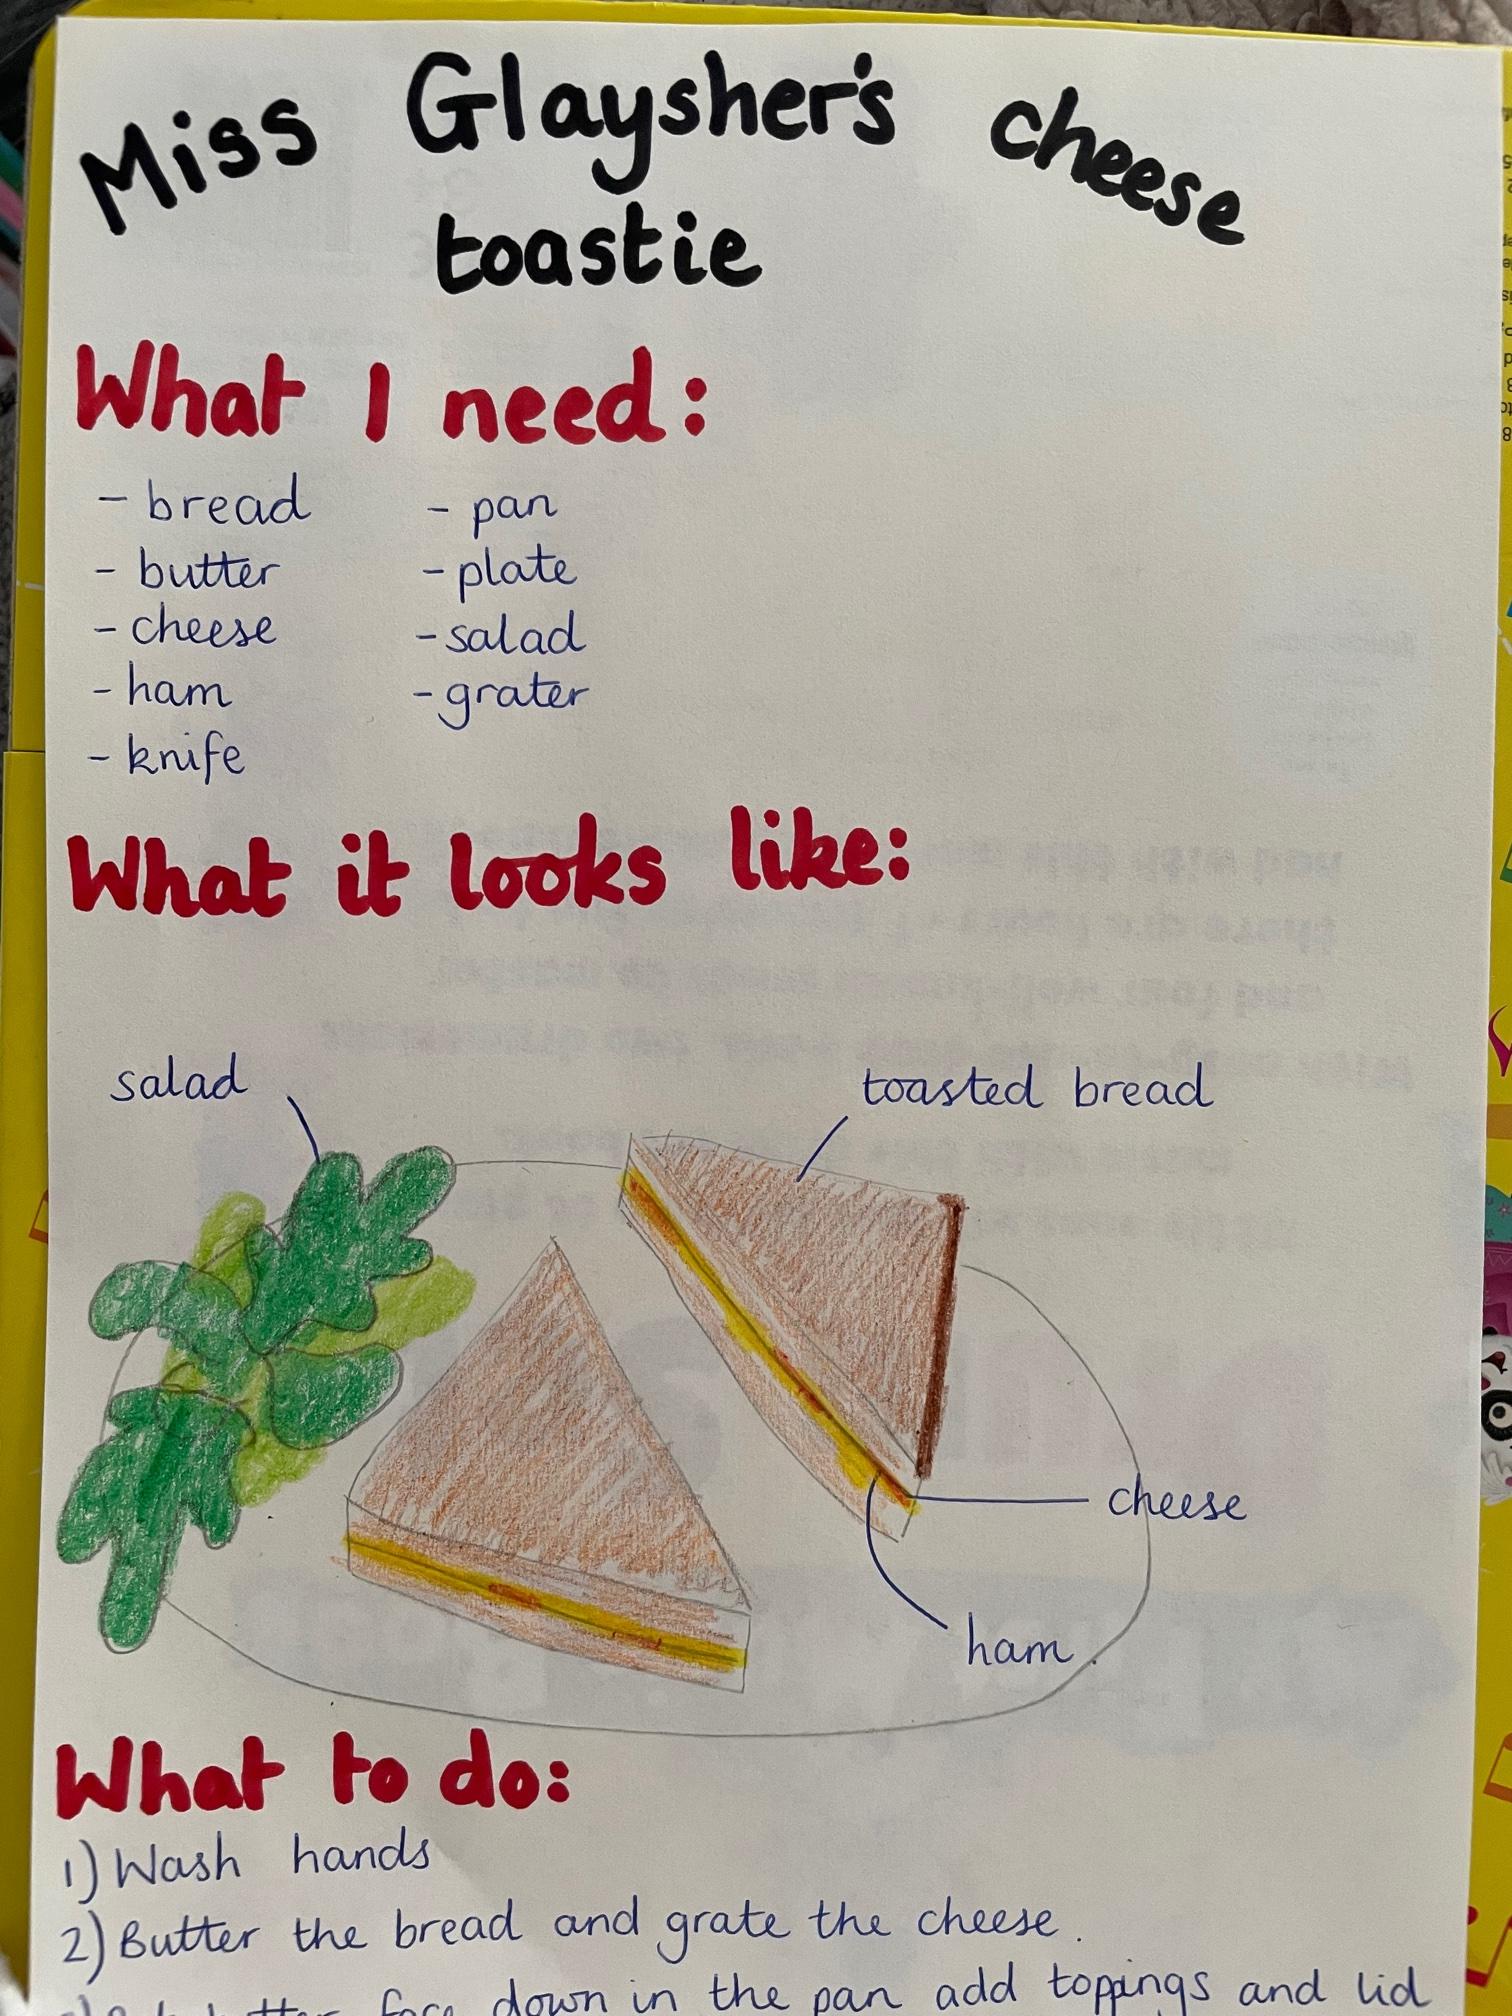 Miss Glaysher's cheese
toastie
What I need:
- bread
- butter
- cheese
- ham
- knife
- pan
- plate
- salad
- grater
What it looks like:
salad
toasted bread
cheese
ham.
What to do:
1) Wash hands
2) Butter the bread and grate the cheese.
face down in the pan add toppings and lid